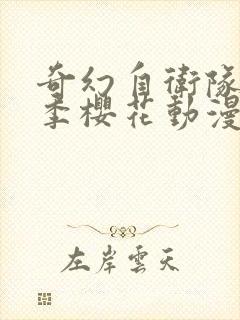 奇幻自衛隊
季櫻花動漫
左岸雲天